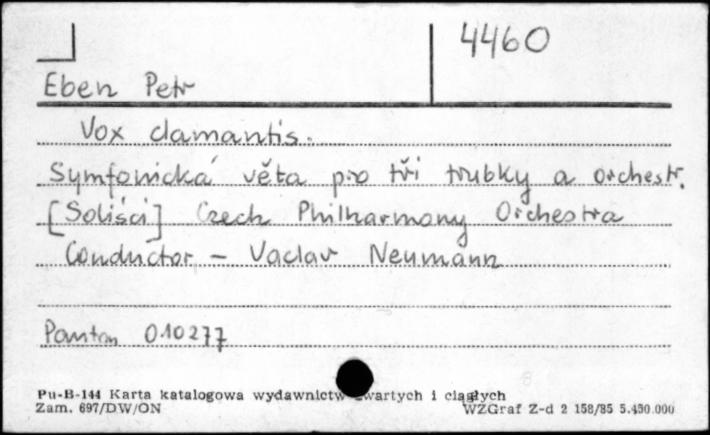 4460
Eben Petr
Vox clamantis.
Symfonická věta pro tři trubky a orchestr.
[Soliści] Czech Philharmony Orchestra
Conductor - Vaclav Neumann
Panton 010277
Pu-B-144 Karta katalogowa wydawnictw zwartych i ciągłych
Zam. 697/DW/ON WZGraf Z-d 2 158/85 5.490.000